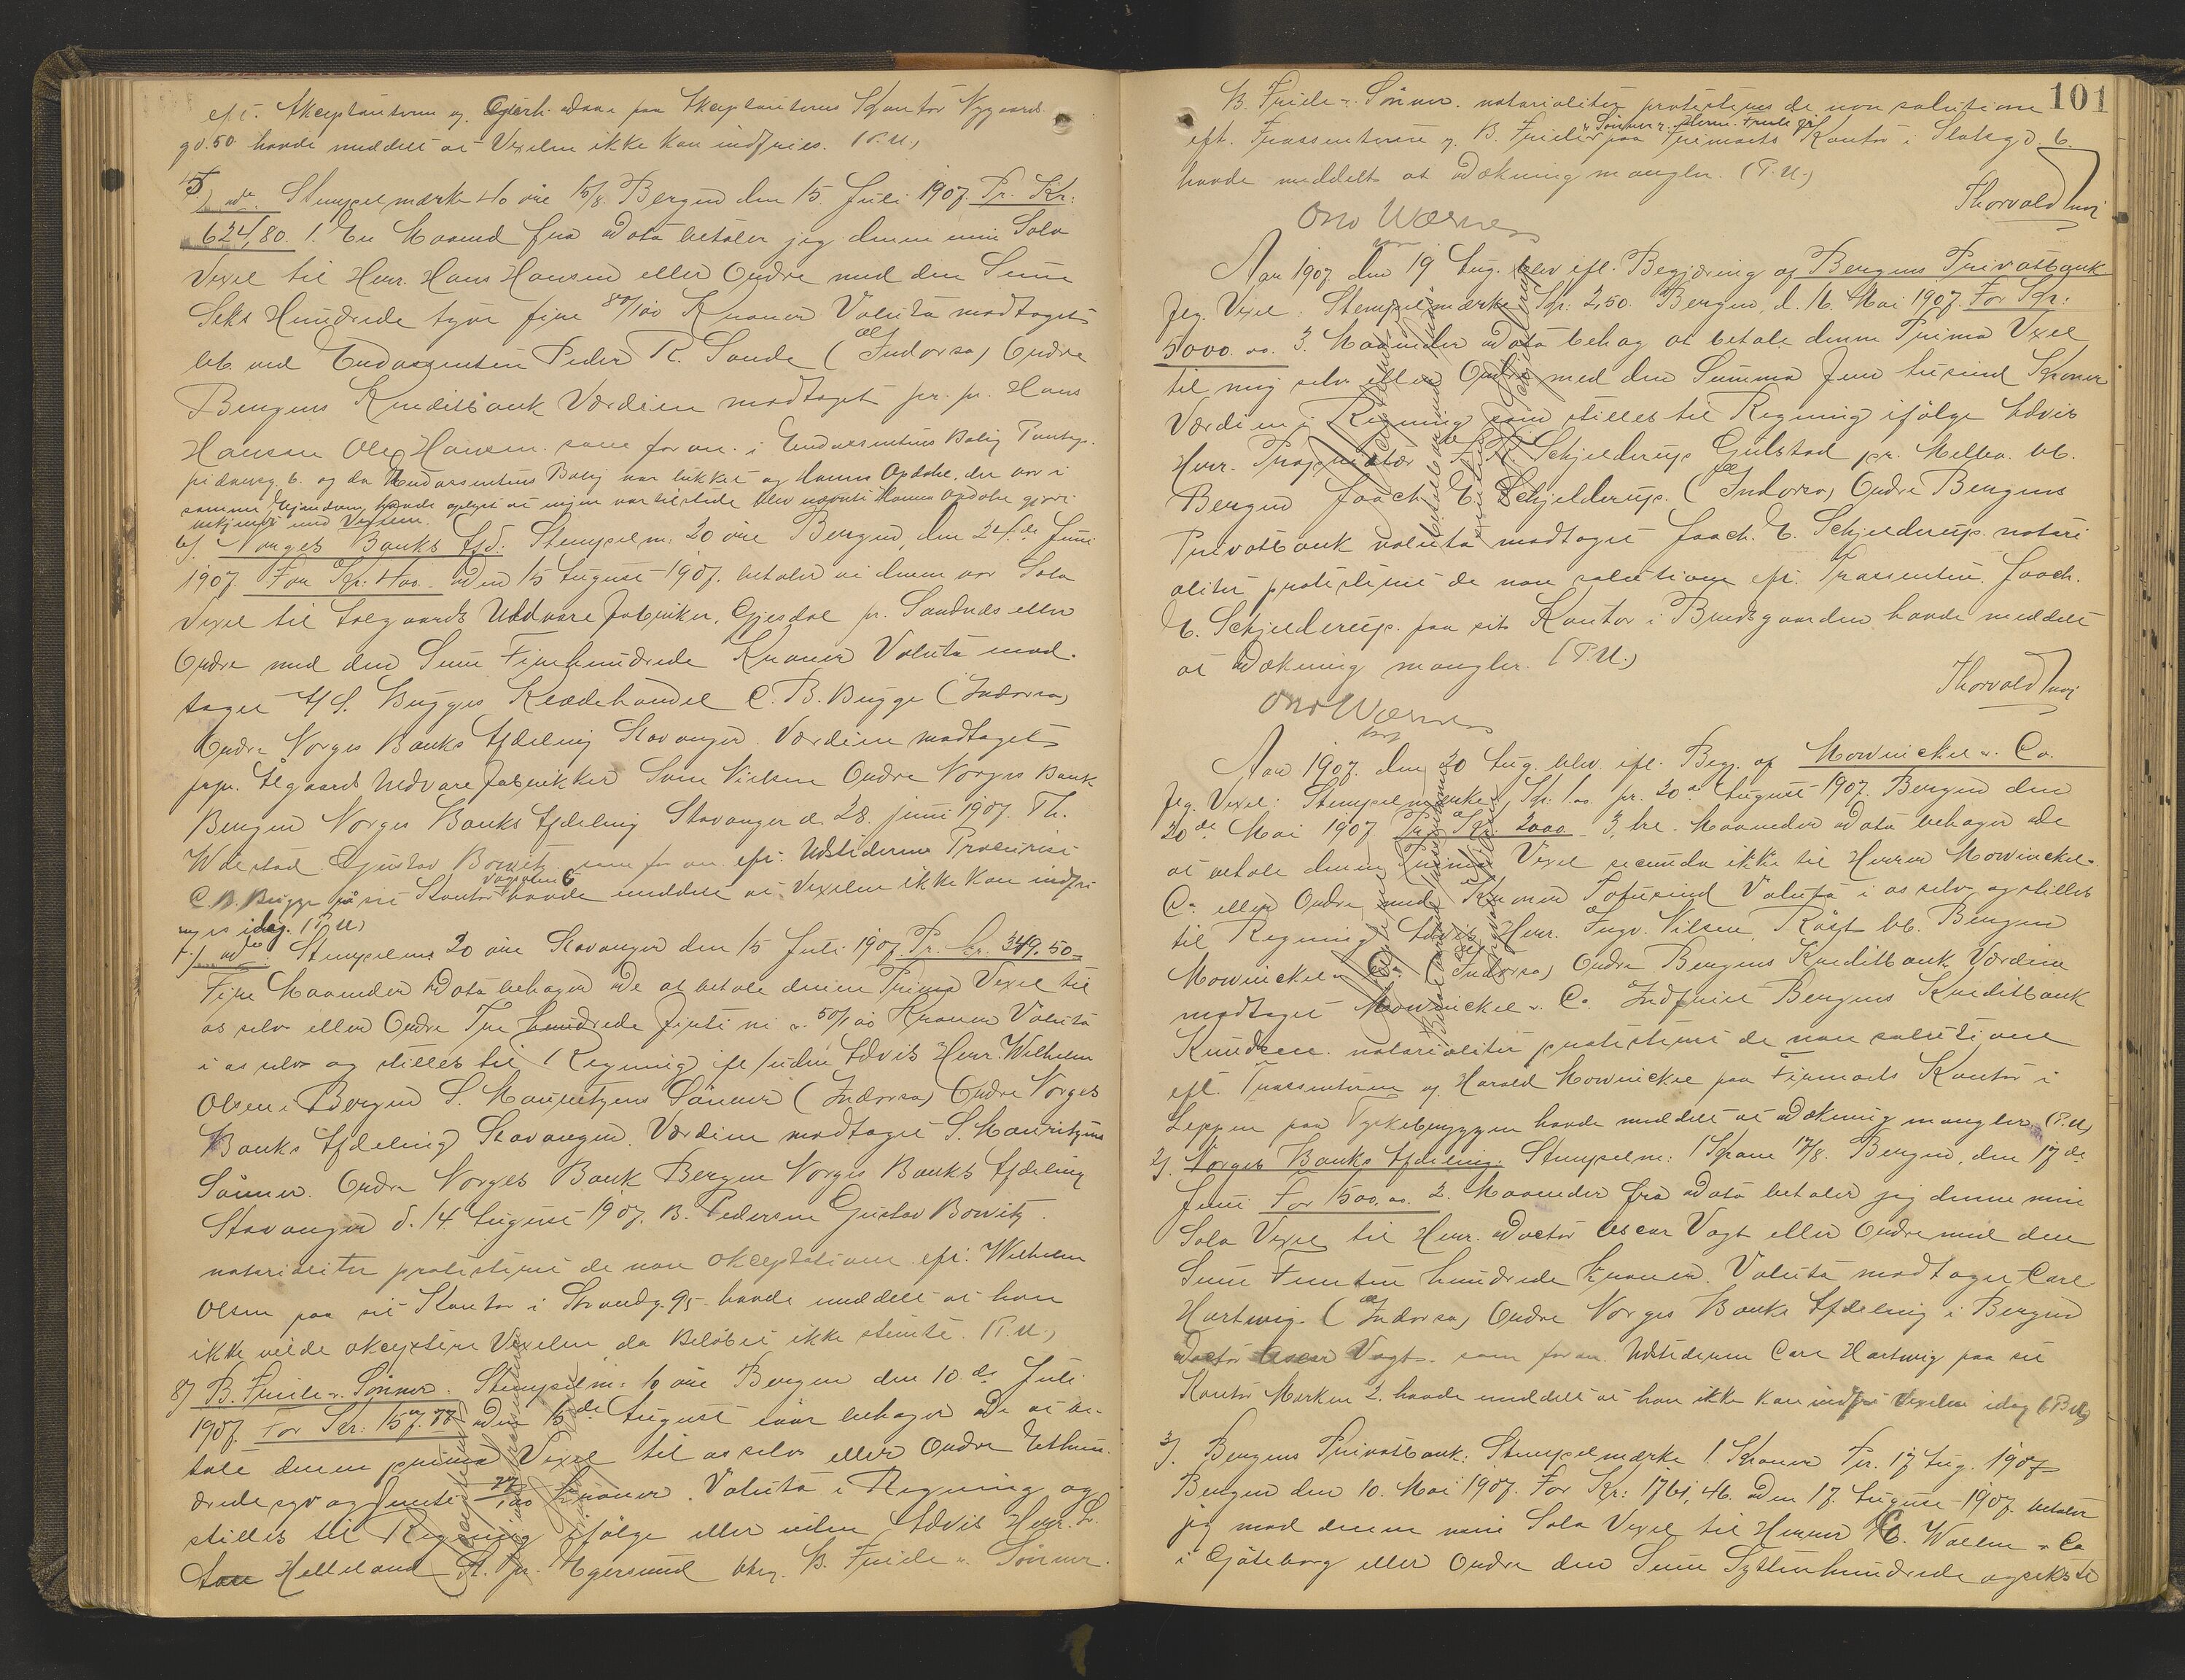 eft. Akceptanterne og paa Akceptanternes Kontor Nygaards
gd. 50 havde meddelt at Vexelen ikke kan indfries. (P.U.)
5) do. Stempelmærke 40 øre 15/8. Bergen den 15 Juli 1907. Pr. Kr:
624,80. 1. En Maaned fra Dato betaler jeg denne min Sola
Vexel til Herr. Hans Hansen eller Ordre med den Sum
Seks Hundrede tyve fire 80/100 Kroner Valuta modtaget
bb. ved Endossenten Peder R. Sande (Indorsa) Ordre
Bergens Kreditbank Værdien modtaget pr. pr. Hans
Hansen Ole Hansen. som foran. i Endossentens Bolig
6. og da Endossentens Bolig var lukket og Hanna Opdahl, der bor i
samme Ejendom, havde oplyst at ingen var tilstede blev nævnte Hanna Opdahl gjort
bekjendt med Vexelen.
6). Norges Banks Afd: Stempelm: 20 øre Bergen, den 24de Juni
1907. For Kr: 400. Den 15 August 1907. betaler vi denne vor Sola
Vexel til Aalgaards Uldvare fabriker, Gjesdal pr. Sandnæs eller
Ordre med den Sum Firehundrede Kroner Valuta mod-
taget A/S. Bugges Klædehandel C. B. Bugge (Indorsa)
Ordre Norges Banks Afdeling Stavanger. Værdien modtaget
prpr. Algaards Uldvarefabrikker Sven Nielsen Ordre Norges Bank
Bergen Norges Banks Afdeling Stavanger d. 28. juni 1907. Th.
Gustav Bowitz som foran eft: Udstederne Procurist
C. B. Bugge på sit Kontor Vaagsalm. 6 havde meddelt at Vexelen ikke kan indfri
es idag. (P.U.)
7.) do. Stempelm: 20 øre Stavanger den 15 Juli 1907. Pr. Kr. 349.50
Fire Maaneder Dato behager De at betale denne Prima Vexel til
os selv eller Ordre Tre hundrede firti ni & 50/100 Kroner Valuta
i os selv og stilles til Regning ifl/uden Advis Herr. Wilhelm
Olsen i Bergen S. Mauritzens Sønner (Indorsa) Ordre Norges
Banks Afdeling Stavanger. Værdien modtaget S. Mauritzens
Sønner. Ordre Norges Bank Bergen Norges Banks Afdeling
Stavanger d. 14 August 1907. B. Pedersen Gustav Bowitz.
notarialiter protesteret de non akceptatione eft: Wilhelm
Olsen paa sit Kontor i Strandg. 95 havde meddelt at han
ikke vilde akceptere Vexelen da Beløbet ikke stemte. (P.U.)
8) B. Friele & Sønner. Stempelm: 10 øre Bergen den 10de Juli
1907. For Kr: 157.77 Den 15de August saar behager De at be-
tale denne prima Vexel til os selv eller Ordre Ethun
drede syv og femti 77/100 Kroner. Valuta i Regning og
stilles til Regning ifølge eller uden Advis Herr. L.
Helleland St. pr. Egersund bbtg. B. Friele & Sønner.
101
B. Friele & Sønner. notarialiter protesteres de non solutione
eft. Trassenterne og B. Friele & Sønner v. Herm. Friele jr. paa Firmaets Kontor i Slotsgd. 6.
havde meddelt at Dækning mangler. (P.U.)
Thorvald
Ono Werner
Aar 1907 den 19 Aug. blev ifl. Begjæring af Bergens Privatbank
flg. Vexel: Stempelmærke Kr: 2,50. Bergen, d. 16. Mai 1907. For Kr:
5000.00. 3. Maaneder Dato behag at betale denne Prima Vexel
til mig selv eller Ordre med den Summa Fem tusind Kroner
Værdien i Regning som stilles til Regning ifølge Advis
Herr. Proprietær Schjelderup Gulstad pr. Melbo. bb.
Bergen Joach. E. Schjelderup. (Indorsa) Ordre Bergens
Privatbank valuta modtaget Joach. E. Schjelderup. notari
aliter protesteret de non solutione eft. Trassenten. Joach.
E. Schjelderup. paa sit Kontor i Bredsgaarden havde meddelt
at Dækning mangler. (P.U.)
Thorvald
Ono Werner
Aar 1907. den 20 Aug. blev. ifl. Begj. af Mowinckel & Co.
flg. Vexel: Stempelmærke, Kr: 1.00. pr. 20de August 1907. Bergen den
20de Mai 1907. Pr. Kr: 2000 3, tre. Maaneder Dato behager De
at betale denne Prima Vexel secunda ikke til Herrer Mowinckel &
Co. eller Ordre med Kroner Totusind Valuta i os selv og stilles
til Regning Advis Herr. Ingv. Nilsen, Røst bb. Bergen
Mowinckel & Co. (Indorsa) Ordre Bergens Kreditbank Værdien
modtaget Mowinckel & Co. Indfriet Bergens Kreditbank
Knudsen. notarialiter protesteret de non solutione
eft. Trassenterne og Harald Mowinckel paa Firmaets Kontor i
Leppen paa Tyskebryggen havde meddelt at Dækning mangler. (P.U.)
2). Norges Banks Afdeling: Stempelm: 1 Krone 17/8. Bergen, den 17de
Juni For 1500.00. 2. Maaneder fra Dato betaler jeg denne min
Sola Vexel til Herr. Doctor Oscar Vogt eller Ordre med den
Sum Femten hundrede kroner. Valuta modtaget Carl
Hartwig. (Indorsa) Ordre Norges Banks Afdeling i Bergen
Doctor Oscar Vogt. som foran. Udstederen Carl Hartwig paa sit
Kontor Marken 2. havde meddelt at han ikke kan indfri Vexelen idag (P.U.)
3). Bergens Privatbank: Stempelmærke 1 Krone Pr. 17 Aug. 1907
Bergen den 10. Mai 1907. For Kr: 1761,46. Den 17. August 1907. betaler
jeg mod denne min Sola Vexel til Herrer C. Wallin & Co
i Göteborg eller Ordre den Sum Syttenhundrede og seksti